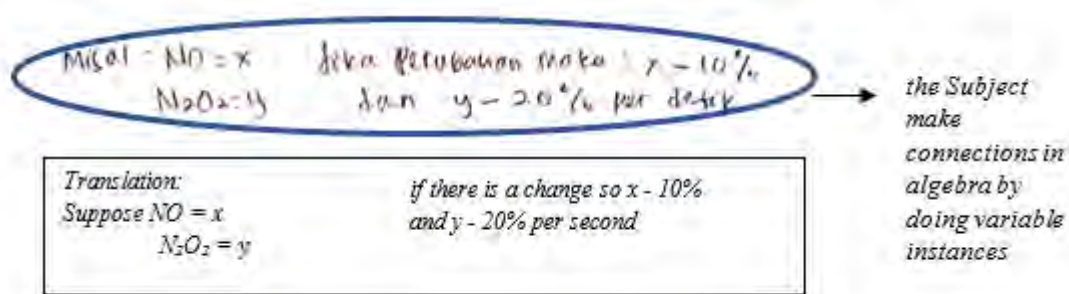 Misal - NO = x Jika Perubahan maka : x - 10%
N2O2 = y dan y - 20% per detik
the Subject
make
connections in
algebra by
doing variable
instances
Translation:
Suppose NO = x
N₂O₂ = y
if there is a change so x - 10%
and y - 20% per second